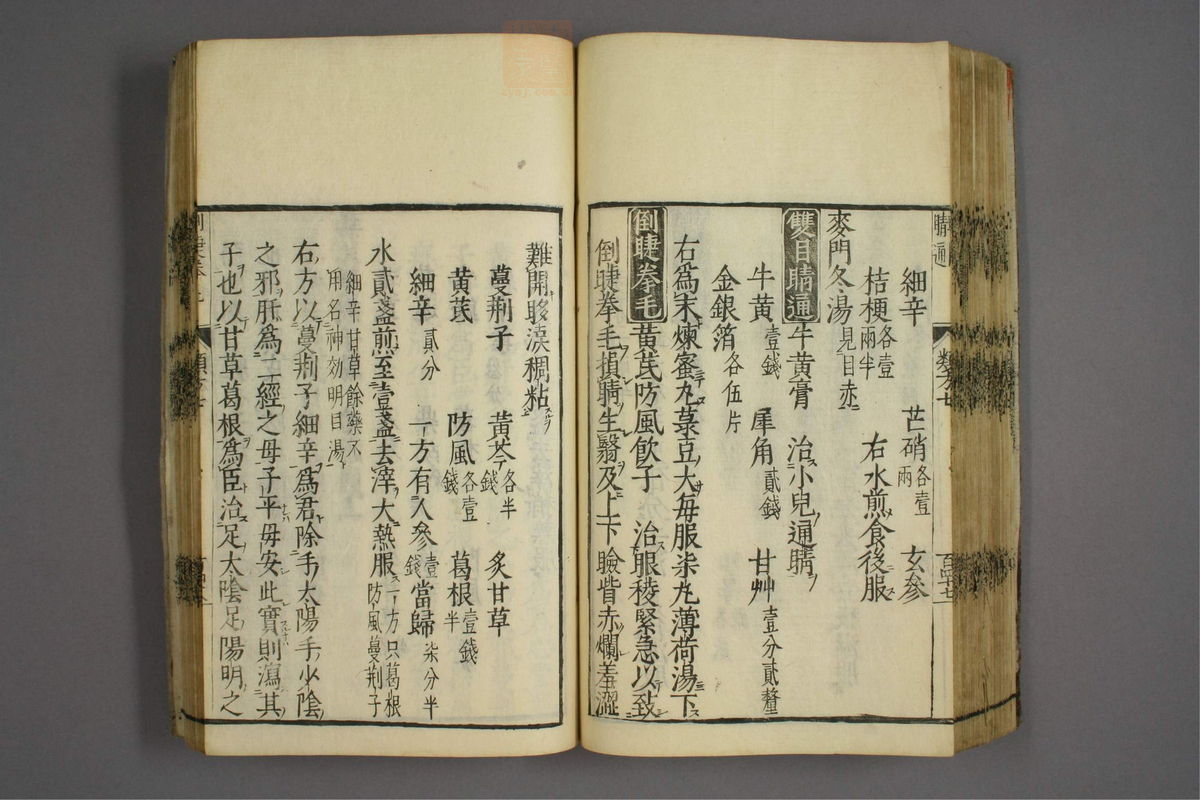 細辛 芒硝各壹兩 玄參
桔梗各壹兩半 右水煎食後服
麥門冬湯見目赤
雙目睛通 牛黃膏 治小兒通睛
牛黃壹錢 犀角貳錢 甘艸壹分貳釐
金銀箔各伍片
右爲末煉蜜丸菉豆大每服柒丸薄荷湯下
倒睫拳毛 黃芪防風飲子 治眼稜緊急以致
倒睫拳毛損睛生翳及上下瞼眥赤爛羞澀
難開眵淚稠粘
蔓荊子 黃芩各半錢 炙甘草
黃芪 防風各壹錢 葛根壹錢半
細辛貳分 一方有人參壹錢當歸柒分半
水貳盞煎至壹盞去滓大熱服一方只葛根防風蔓荊子
細辛甘草餘藥不用名神効明目湯
右方以蔓荊子細辛爲君除手太陽手少陰
之邪肝爲二經之母子平母安此實則瀉其
子也以甘草葛根爲臣治足太陰足陽明之